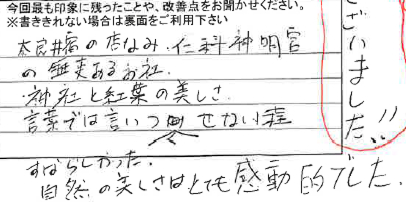 今回最も印象に残ったことや、改善点をお聞かせください。
※書ききれない場合は裏面をご利用下さい
の店なみ・仁科神明宮
の歴史あるお社
・神社と紅葉の美しさ
言葉では言いつくせない程
すばらしかった。
自然の美しさはとても感動的でした。
ございました!!